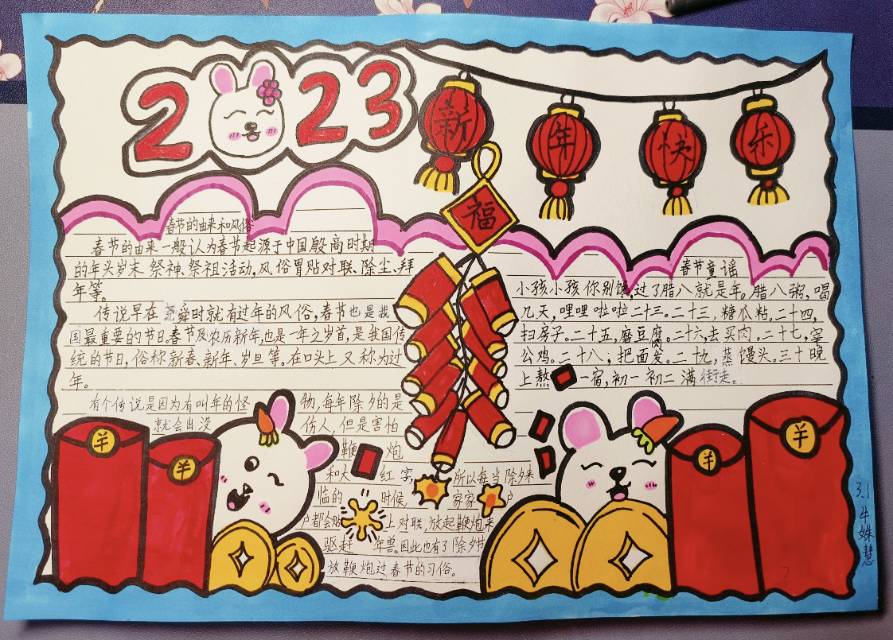 2023
新年快乐
福
春节的由来和风俗
春节的由来一般认为春节起源于中国殷商时期
的年头岁末祭神、祭祖活动,风俗冒贴对联、除尘、拜
年等。
传说早在尧舜时就有过年的风俗,春节也是我
国最重要的节日,春节及农历新年,也是一年之岁首,是我国传
统的节日,俗称新春、新年、岁旦等。在口头上又称为过
年。
有个传说是因为有叫年的怪物,每年除夕的是
就会出没伤人,但是害怕
鞭炮
和大红字,所以每当除夕来
临的时候,家家户
户都会贴上对联,放起鞭炮来
驱赶年兽。因此也有了除夕节
放鞭炮过春节的习俗。
春节童谣
小孩小孩你别馋,过了腊八就是年。腊八粥,喝
几天,哩哩啦啦二十三。二十三,糖瓜粘,二十四,
扫房子。二十五,磨豆腐。二十六,去买肉。二十七,宰
公鸡。二十八,把面发。二十九,蒸馒头。三十晚
上熬一宿,初一初二满街走。
羊
羊
羊
羊
3.1
牛姝慧